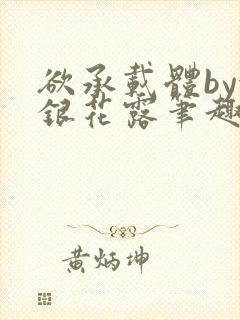 欲承載體by
銀花露筆趣
黃炳坤